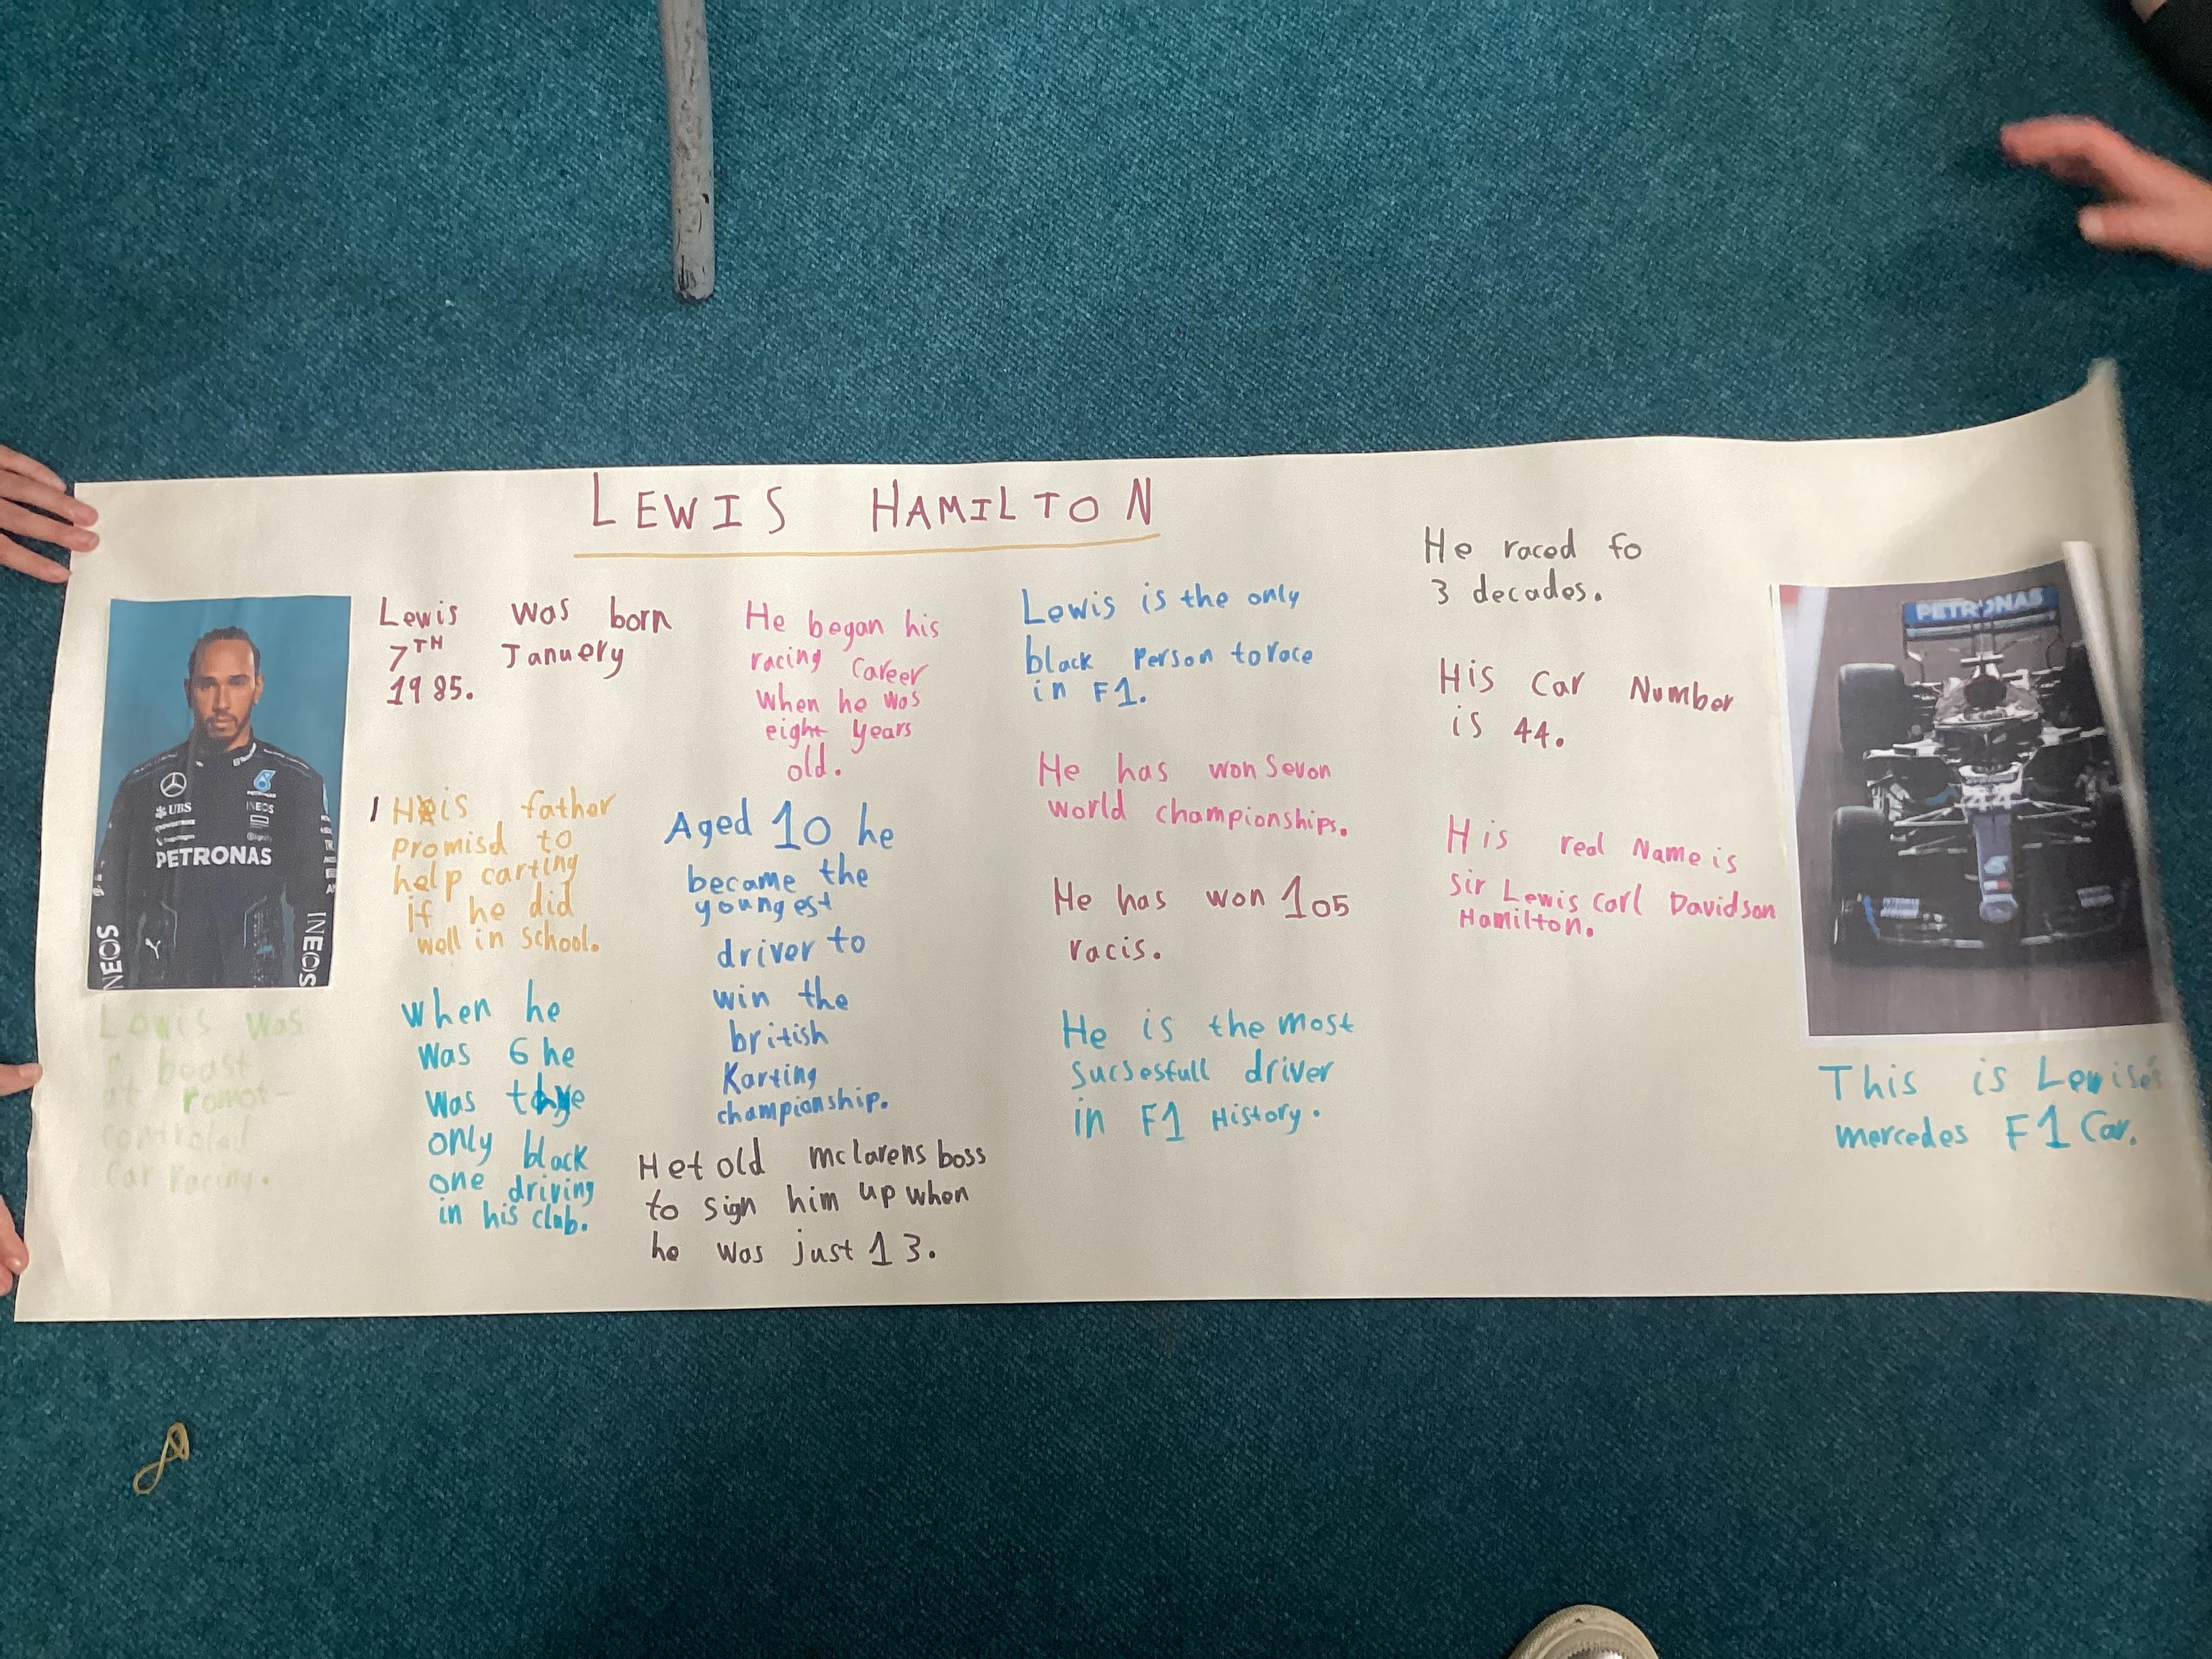 LEWIS HAMILTON
UBS
INEOS
PETRONAS
INEOS
INEOS
Lewis was
a beast
at romot-
controled
Car racing.
Lewis was born
7TH Januery
1985.
His father
promisd to
help carting
if he did
well in school.
when he
was 6 he
was the
only black
one driving
in his club.
He began his
racing career
when he was
eight years
old.
Aged 10 he
became the
youngest
driver to
win the
british
Karting
championship.
He told mclarens boss
to sign him up when
he was just 13.
Lewis is the only
black Person to race
in F1.
He has won sevon
world championships.
He has won 105
racis.
He is the most
sucsesfull driver
in F1 History.
He raced fo
3 decades.
His Car Number
is 44.
His real Name is
sir Lewis Carl Davidson
Hamilton.
PETRONAS
44
This is Lewise's
mercedes F1 Car.